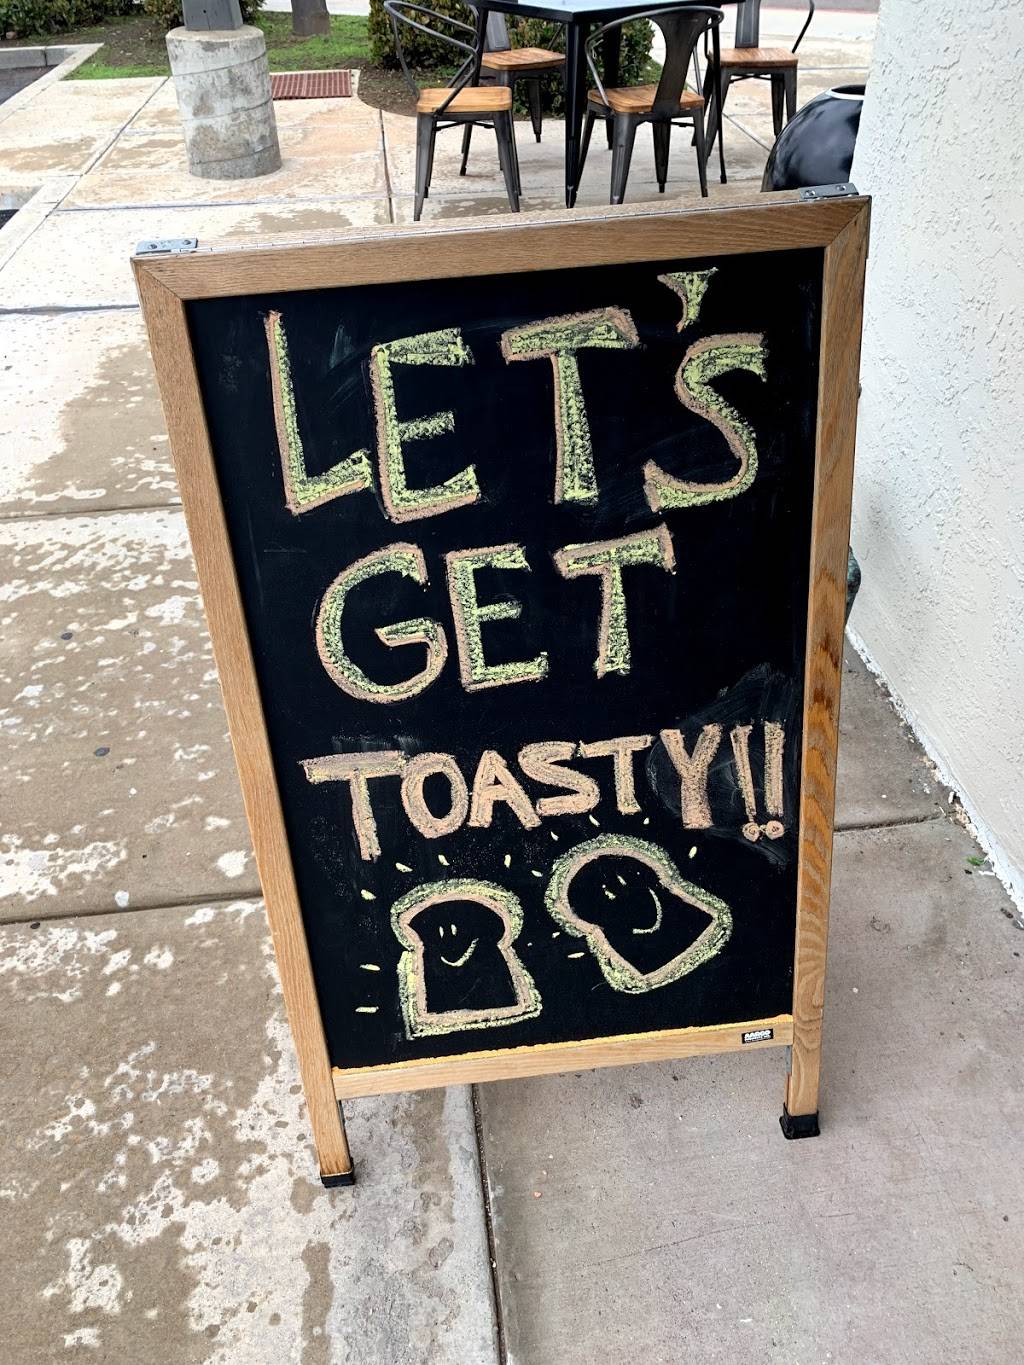 LET'S
GET
TOASTY!!